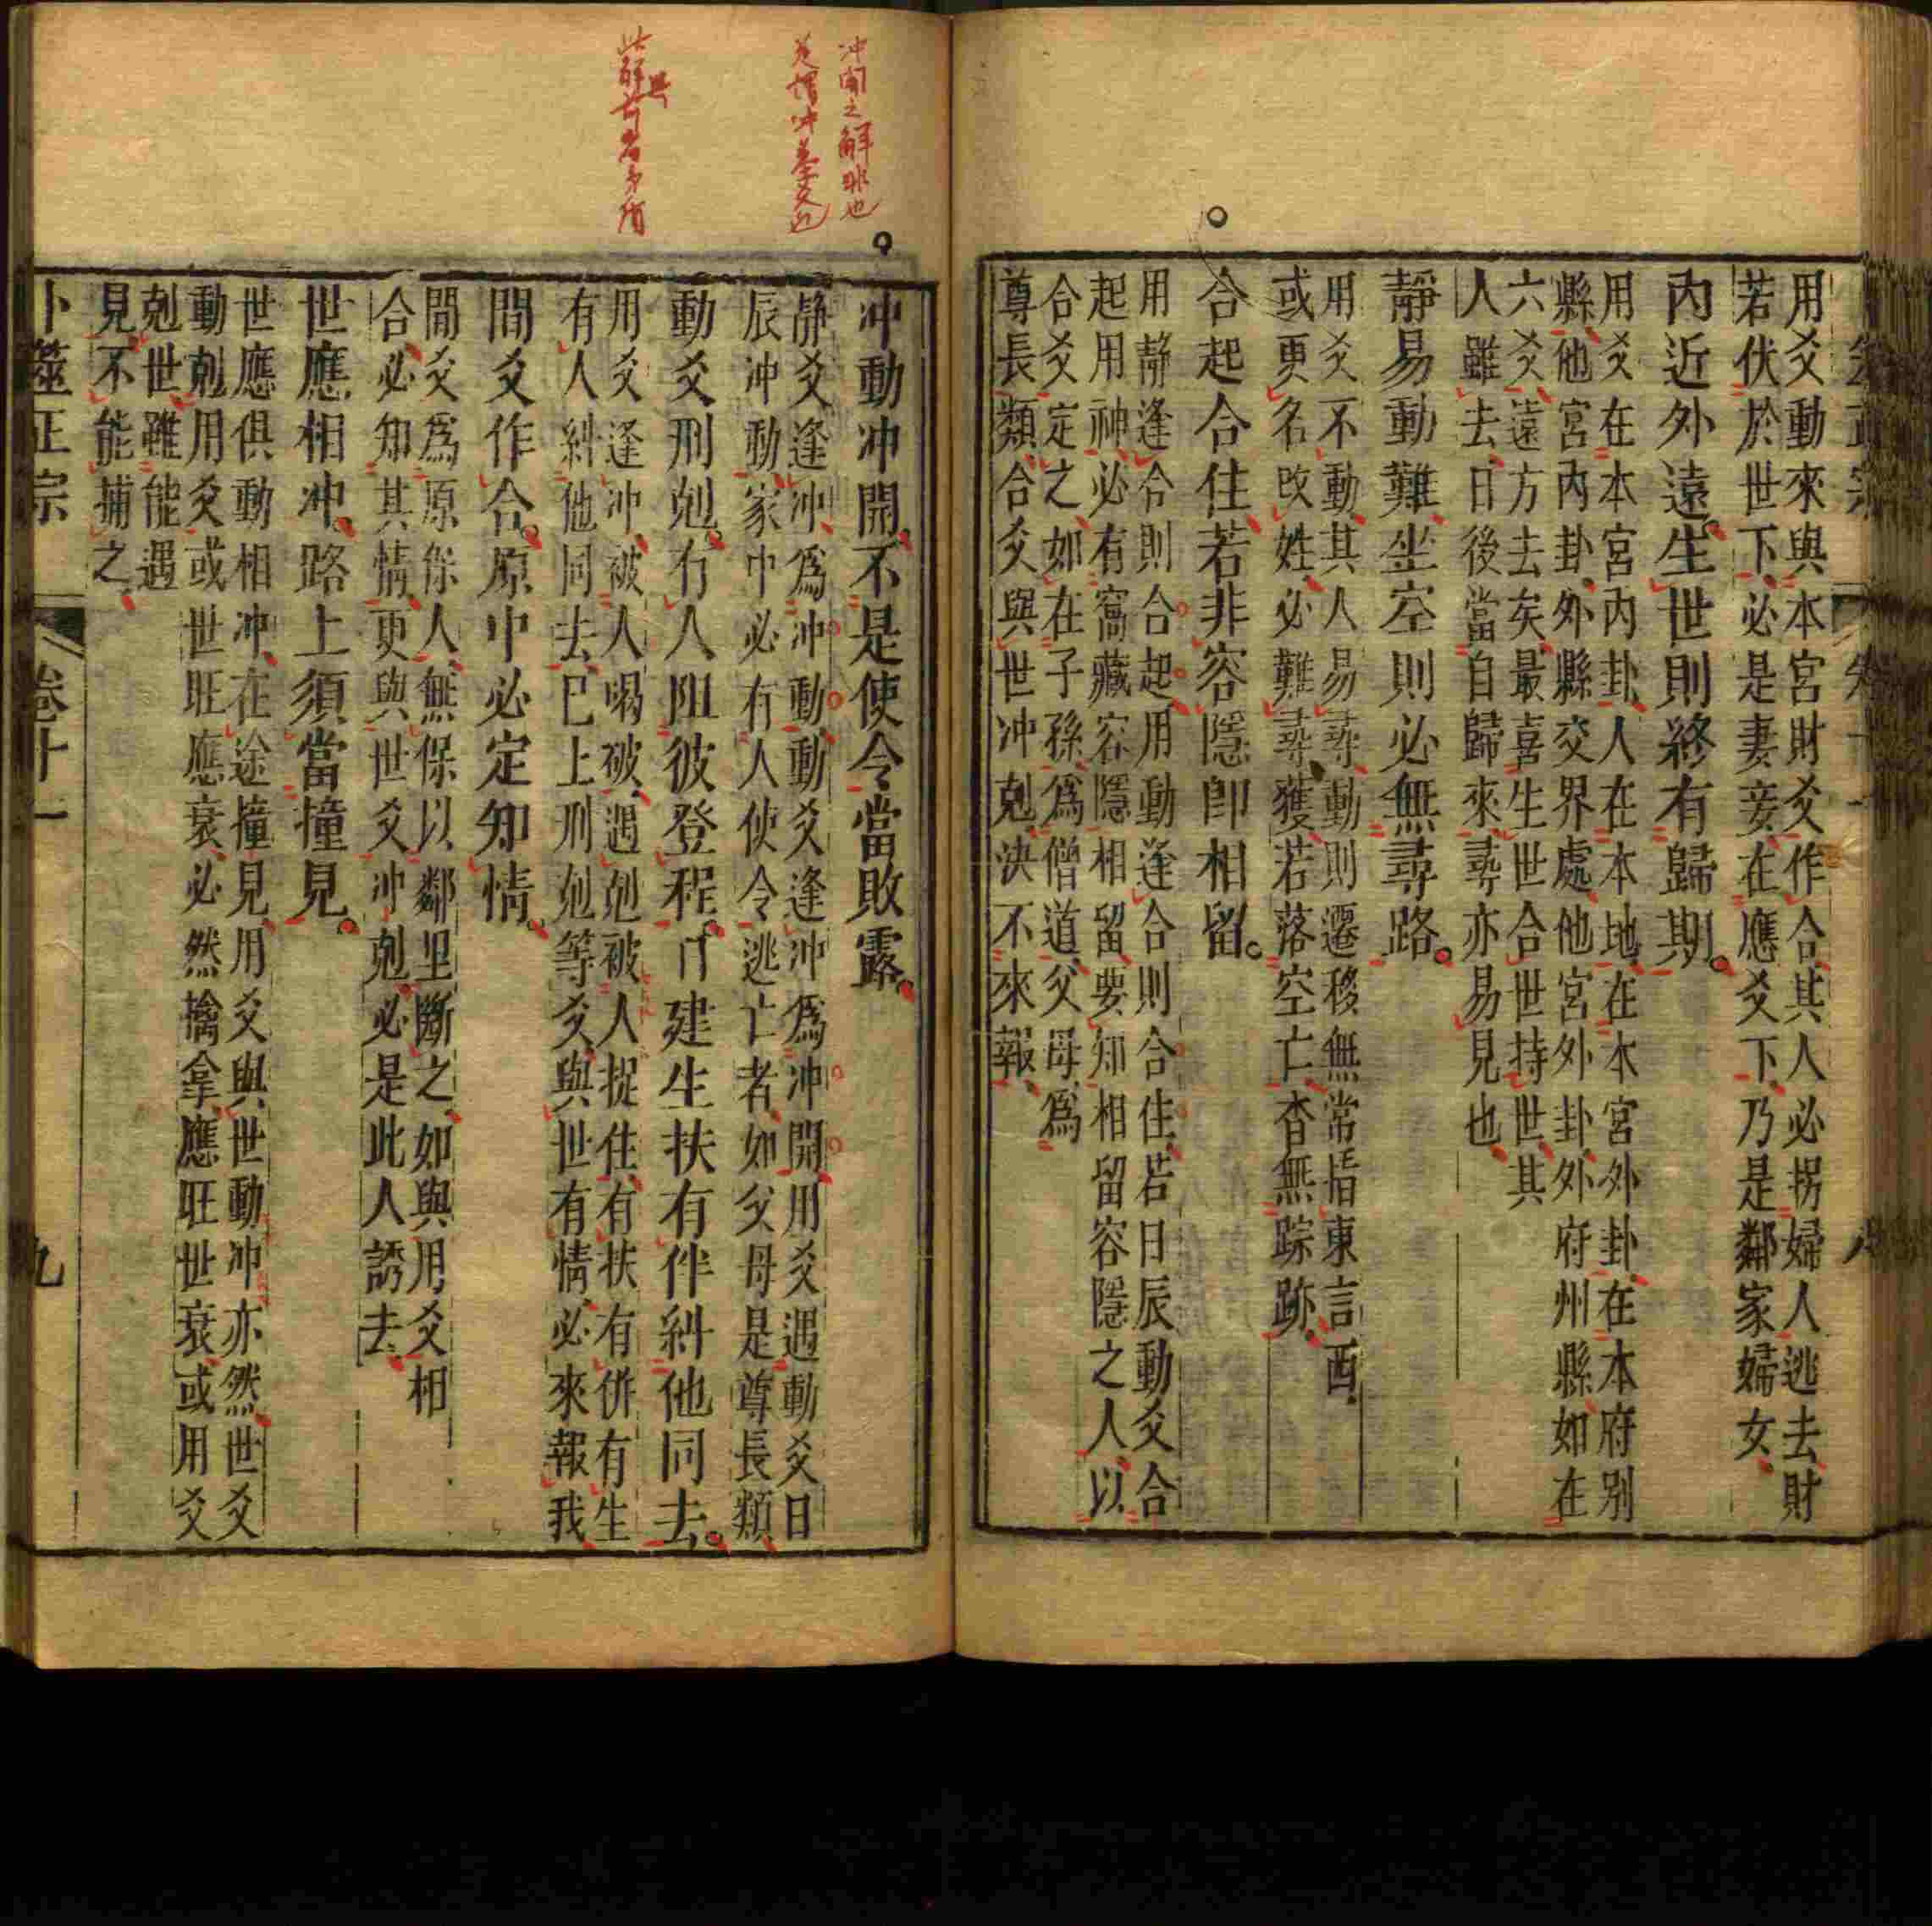 用爻動來與本宮財爻作合其人必拐婦人逃去財
若伏於世下必是妻妾在應爻下乃是鄰家婦女
內近外遠生世則終有歸期
用爻在本宮內卦人在本地在本宮外卦在本府別
縣他宮內卦外縣交界處他宮外卦外府州縣如在
六爻遠方去矣最喜生世合世持世其
人雖去日後當自歸來尋亦易見也
靜易動難坐空則必無尋路
用爻不動其人易尋動則遷移無常指東言西
或更名改姓必難尋獲若落空亡杳無踪跡
合起合住若非容隱即相留
用靜逢合則合起用動逢合則合住若日辰動爻合
起用神必有窩藏容隱相留要知相留容隱之人以
合爻定之如在子孫爲僧道父母爲
尊長類合爻與世冲剋決不來報
冲開之解非也
是擇冲墓爻也
此解與前者矛盾
冲動冲開不是使令當敗露
靜爻逢冲爲冲動動爻逢冲爲冲開用爻遇動爻日
辰冲動家中必有人使令逃亡者如父母是尊長類
動爻刑剋有人阻彼登程日建生扶有伴糾他同去
用爻逢冲被人喝破遇剋被人捉住有扶有併有生
有人糾他同去已上刑剋等爻與世有情必來報我
間爻作合原中必定知情
間爻爲原保人無保以鄰里斷之如與用爻相
合必知其情更與世爻冲剋必是此人誘去
世應相冲路上須當撞見
世應俱動相冲在途撞見用爻與世動冲亦然世爻
動剋用爻或世旺應衰必然擒拿應旺世衰或用爻
剋世雖能遇
見不能捕之
卜筮正宗 卷十一 九